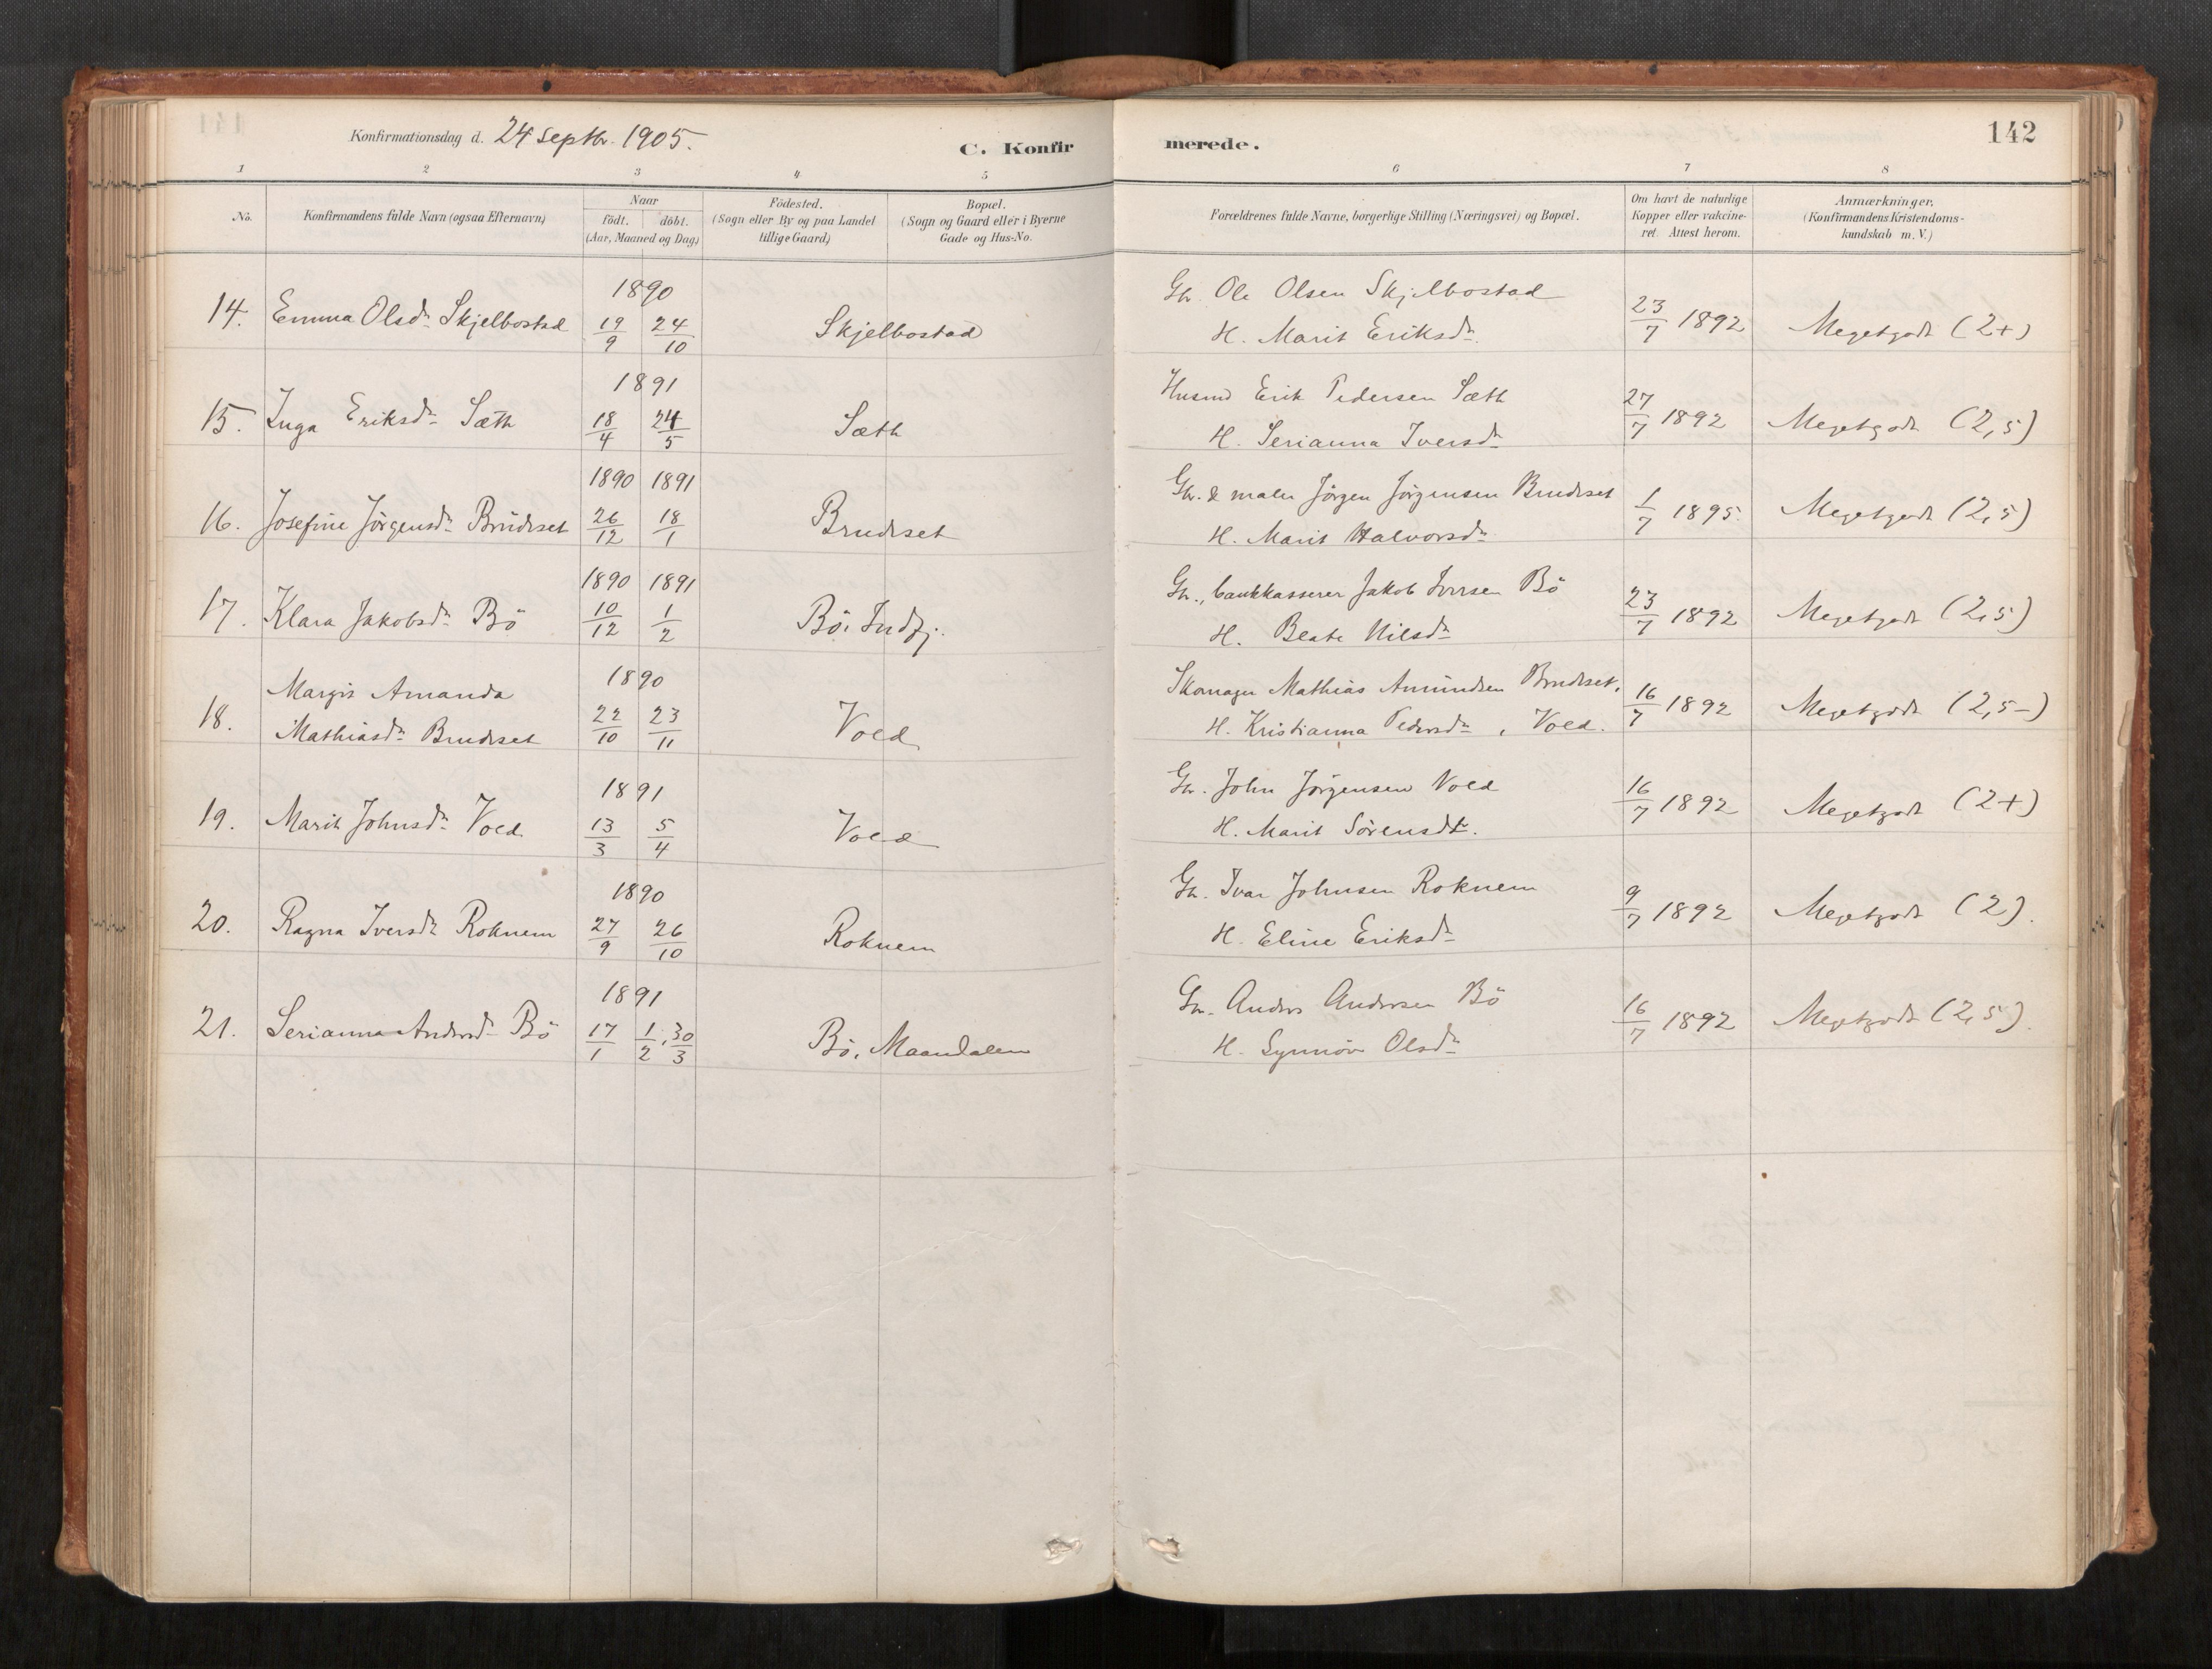 Konfirmationsdag d. 24 Septbr. 1905.
C. Konfirmerede.
142
1 2 3 4 5 6 7 8
No.
Konfirmandens fulde Navn (ogsaa Efternavn)
Naar
födt. döbt.
(Aar, Maaned og Dag)
Födested.
(Sogn eller By og paa Landet
tillige Gaard)
Bopæl.
(Sogn og Gaard eller i Byerne
Gade og Hus-No.
Forældrenes fulde Navne, borgerlige Stilling (Næringsvei) og Bopæl.
Om havt de naturlige
Kopper eller vakcine-
ret. Attest herom.
Anmærkninger.
(Konfirmandens Kristendoms-
kundskab m. V.)
1890
14. Emma Olsdr Skjelbostad 19/9 24/10 Skjelbostad
Gbr. Ole Olsen Skjelbostad
H. Marit Eriksdr.
23/7 1892 Megetgodt (2+)
1891
15. Inga Eriksdr Sæth 18/4 24/5 Sæth
Husmd Erik Pedersen Sæth
H. Serianna Iversdr
27/7 1892 Megetgodt (2,5)
1890 1891
16. Josefine Jörgensdr Brudeset 26/12 18/1 Brudeset
Gbr. & maler Jörgen Jörgensen Brudeset
H. Marit Halvorsdr
1/7 1895. Megetgodt (2,5)
1890 1891
17. Klara Jakobsdr Bö 10/12 1/2 Bö, Indfj.
Gbr., bankkasserer Jakob Iversen Bö
H. Beate Nilsdr
23/7 1892 Megetgodt (2,5)
1890
18. Margit Amanda
Mathiasdr Brudeset 22/10 23/11 Vold
Skomager Mathias Amundsen Brudeset,
H. Kristianna Pedersdr, Vold.
16/7 1892 Megetgodt (2,5-)
1891
19. Marit Johnsdr Vold 13/3 5/4 Vold
Gbr. John Jörgensen Vold
H. Marit Sörensdtr.
16/7 1892 Megetgodt (2+)
1890
20. Ragna Iversdr Roknem 27/9 26/10 Roknem
Gbr. Ivar Johnsen Roknem
H. Eline Eriksdr
9/7 1892 Megetgodt (2).
1891
21. Serianna Andersdr Bö 17/1 1/2, 30/3 Bö, Maandalen
Gbr. Anders Andersen Bö
H. Synnöv Olsdr
16/7 1892 Megetgodt (2,5).